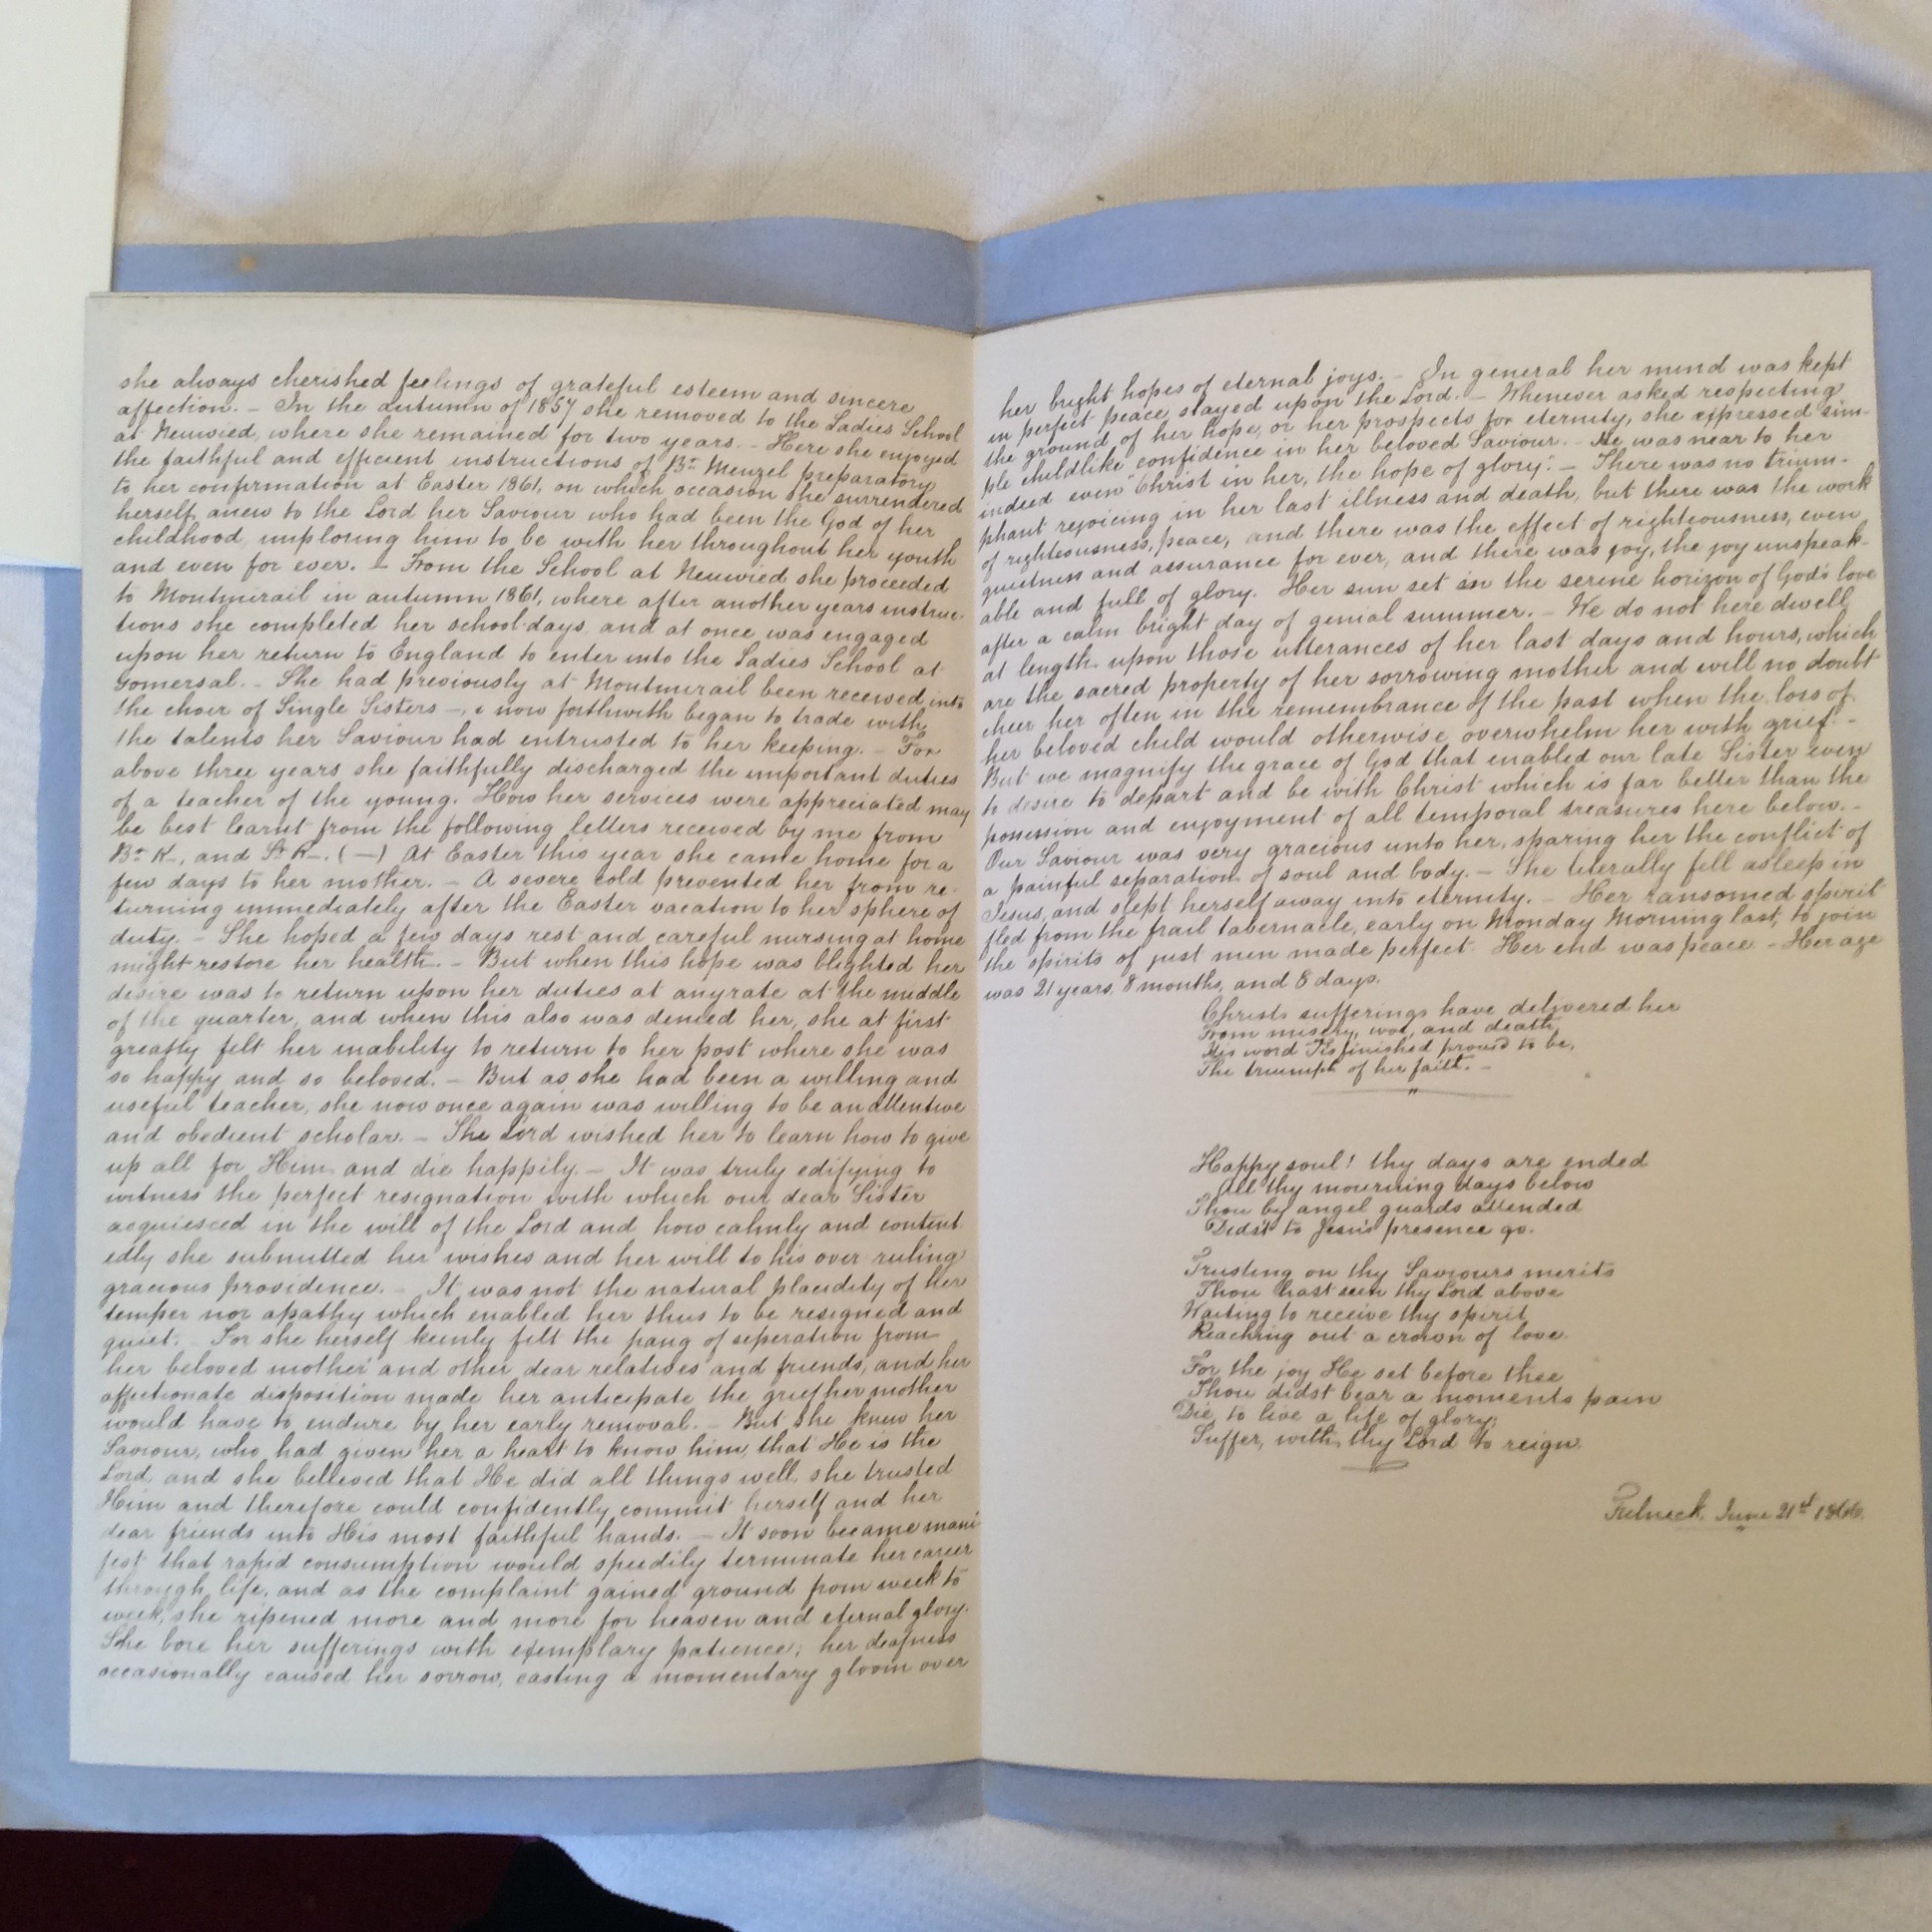 she always cherished feelings of grateful esteem and sincere
affection. – In the autumn of 1857 she removed to the Ladies School
at Neuwied, where she remained for two years. – Here she enjoyed
the faithful and efficient instructions of Br. Menzel preparatory
to her confirmation at Easter 1861, on which occasion she surrendered
herself anew to the Lord her Saviour who had been the God of her
childhood, imploring him to be with her throughout her youth
and even for ever. – From the School at Neuwied she proceeded
to Montmirail in autumn 1861, where after another years instruc-
tions she completed her school-days, and at once was engaged
upon her return to England to enter into the Ladies School at
Gomersal. – She had previously at Montmirail been received into
the choir of Single Sisters –, & now forthwith began to trade with
the talents her Saviour had entrusted to her keeping. – For
above three years she faithfully discharged the important duties
of a teacher of the young. How her services were appreciated may
be best learnt from the following letters received by me from
Br. K–, and Sr. K–. (—) At Easter this year she came home for a
few days to her mother. – A severe cold prevented her from re-
turning immediately after the Easter vacation to her sphere of
duty. – She hoped a few days rest and careful nursing at home
might restore her health. – But when this hope was blighted her
desire was to return upon her duties at anyrate at the middle
of the quarter, and when this also was denied her, she at first
greatly felt her inability to return to her post where she was
so happy and so beloved. – But as she had been a willing and
useful teacher, she now once again was willing to be an attentive
and obedient scholar. – The Lord wished her to learn how to give
up all for Him and die happily. – It was truly edifying to
witness the perfect resignation with which our dear Sister
acquiesced in the will of the Lord and how calmly and content
edly she submitted her wishes and her will to his over ruling
gracious providence. – It was not the natural placidity of her
temper nor apathy which enabled her thus to be resigned and
quiet. For she herself keenly felt the pang of seperation from
her beloved mother and other dear relatives and friends, and her
affectionate disposition made her anticipate the grief her mother
would have to endure by her early removal. – But she knew her
Saviour, who had given her a heart to know him, that He is the
Lord, and she believed that He did all things well, she trusted
Him and therefore could confidently commit herself and her
dear friends into His most faithful hands. – It soon became mani
fest that rapid consumption would speedily terminate her career
through life, and as the complaint gained ground from week to
week, she ripened more and more for heaven and eternal glory.
She bore her sufferings with exemplary patience; her deafness
occasionally caused her sorrow, casting a momentary gloom over
her bright hopes of eternal joys. – In general her mind was kept
in perfect peace, stayed upon the Lord. – Whenever asked respecting
the ground of her hope, or her prospects for eternity, she expressed sim-
ple childlike confidence in her beloved Saviour. – He was near to her
indeed even "Christ in her, the hope of glory." – There was no trium-
phant rejoicing in her last illness and death, but there was the work
of righteousness, peace, and there was the effect of righteousness, even
quietness and assurance for ever, and there was joy, the joy unspeak-
able and full of glory. Her sun set in the serene horizon of God's love
after a calm bright day of genial summer. – We do not here dwell
at length upon those utterances of her last days and hours, which
are the sacred property of her sorrowing mother and will no doubt
cheer her often in the remembrance of the past when the loss of
her beloved child would otherwise overwhelm her with grief. –
But we magnify the grace of God that enabled our late Sister even
to desire to depart and be with Christ which is far better than the
possession and enjoyment of all temporal treasures here below. –
Our Saviour was very gracious unto her, sparing her the conflict of
a painful separation of soul and body. – She literally fell asleep in
Jesus, and slept herself away into eternity. – Her ransomed spirit
fled from the frail tabernacle, early on Monday Morning last, to join
the spirits of just men made perfect. Her end was peace – Her age
was 21 years, 8 months, and 8 days.
Christs sufferings have delivered her
From misery, woe, and death,
His word Tis finished proved to be,
The triumph of her faith. –
Happy soul! thy days are ended
All thy mourning days below
Thou by angel guards attended
Didst to Jesus presence go.
Trusting on thy Saviours merits
Thou hast seen thy Lord above
Waiting to receive thy spirit,
Reaching out a crown of love.
For the joy He set before thee
Thou didst bear a moments pain
Die, to live a life of glory;
Suffer, with thy Lord to reign.
Fulneck, June 21st 1866.